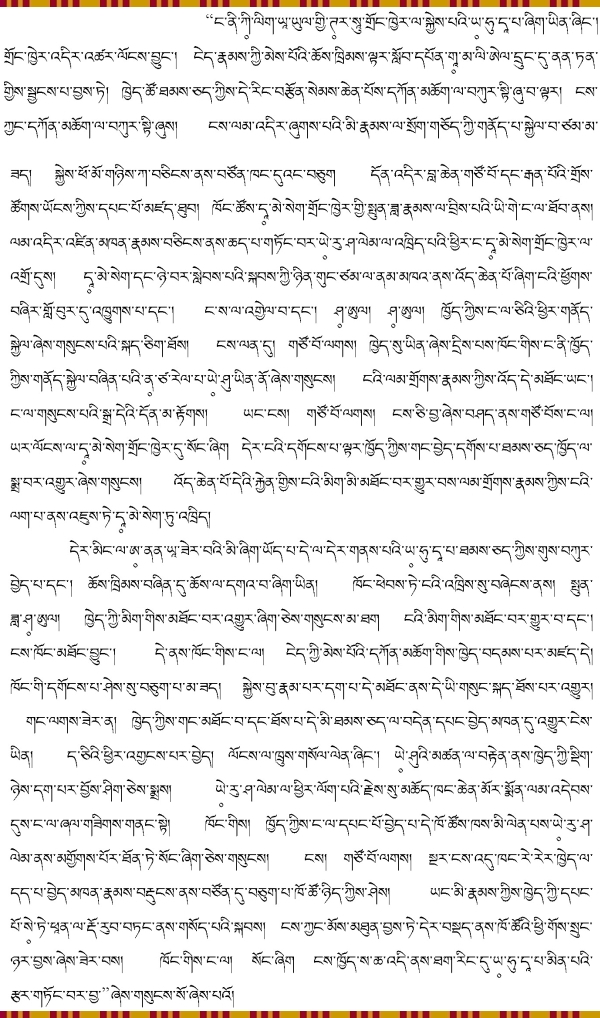 “ང་ནི་ཀི་ལིག་ཡཱ་ཡུལ་གྱི་ཏར་སུ་གྲོང་ཁྱེར་ལ་སྐྱེས་པའི་ཡ་ཧུ་དཱ་པ་ཞིག་ཡིན་ཞིང་།
གྲོང་ཁྱེར་འདིར་འཚར་ལོངས་བྱུང་། ངེད་རྣམས་ཀྱི་མེས་པོའི་ཆོས་ཁྲིམས་ལྟར་སློབ་དཔོན་གཱ་མ་ལི་ཨེལ་དྲུང་དུ་ནན་ཏན་
གྱིས་སྦྱངས་པ་བྱས་ཏེ། ཁྱེད་ཚོ་ཐམས་ཅད་ཀྱིས་དེ་རིང་བརྩོན་སེམས་ཆེན་པོས་དཀོན་མཆོག་ལ་བཀུར་སྟི་ཞུ་བ་ལྟར། ངས་
ཀྱང་དཀོན་མཆོག་ལ་བཀུར་སྟི་ཞུས། ངས་ལམ་འདིར་ཞུགས་པའི་མི་རྣམས་ལ་སྲོག་གཅོད་ཀྱི་གནོད་པ་སྐྱེལ་བ་ཙམ་མ་
ཟད། སྐྱེས་ཕོ་མོ་གཉིས་ཀ་བཅིངས་ནས་བཙོན་ཁང་དུའང་བཅུག དོན་འདིར་བླ་ཆེན་གཙོ་བོ་དང་རྒན་པོའི་གྲོས་
ཚོགས་ཡོངས་ཀྱིས་དཔང་པོ་མཛད་ཐུབ། ཁོང་ཚོས་དཱ་མེ་སེག་གྲོང་ཁྱེར་གྱི་སྤུན་ཟླ་རྣམས་ལ་བྲིས་པའི་ཡི་གེ་ང་ལ་ཐོབ་ནས།
ལམ་འདིར་འཛིན་མཁན་རྣམས་བཅིངས་ནས་ཆད་པ་གཏོང་བར་ཡེ་རུ་ཤ་ལེམ་ལ་འཁྲིད་པའི་ཕྱིར་ང་དཱ་མེ་སེག་གྲོང་ཁྱེར་ལ་
འགྲོ་དུས། དཱ་མེ་སེག་དང་ཉེ་བར་སླེབས་པའི་སྐབས་ཀྱི་ཉིན་གུང་ཙམ་ལ་ནམ་མཁའ་ནས་འོད་ཆེན་པོ་ཞིག་ངའི་ཕྱོགས་
བཞིར་གློ་བུར་དུ་འཁྱུགས་པ་དང་། ང་ས་ལ་འགྱེལ་བ་དང་། ཤཱ་ཨུལ། ཤཱ་ཨུལ། ཁྱོད་ཀྱིས་ང་ལ་ཅིའི་ཕྱིར་གནོད་
སྐྱེལ་ཞེས་གསུངས་པའི་སྐད་ཅིག་ཐོས། ངས་ལན་དུ། གཙོ་བོ་ལགས། ཁྱེད་སུ་ཡིན་ཞེས་དྲིས་པས་ཁོང་གིས་ང་ནི་ཁྱོད་
ཀྱིས་གནོད་སྐྱེལ་བཞིན་པའི་ནཱ་ཙ་རེལ་པ་ཡེ་ཤུ་ཡིན་ནོ་ཞེས་གསུངས། ངའི་ལམ་གྲོགས་རྣམས་ཀྱིས་འོད་དེ་མཐོང་ཡང་།
ང་ལ་གསུངས་པའི་སྒྲ་དེའི་དོན་མ་རྟོགས། ཡང་ངས། གཙོ་བོ་ལགས། ངས་ཅི་བྱ་ཞེས་བཤད་ནས་གཙོ་བོས་ང་ལ།
ཡར་ལོངས་ལ་དཱ་མེ་སེག་གྲོང་ཁྱེར་དུ་སོང་ཞིག དེར་ངའི་དགོངས་པ་ལྟར་ཁྱོད་ཀྱིས་གང་བྱེད་དགོས་པ་ཐམས་ཅད་ཁྱོད་ལ་
སྨྲ་བར་འགྱུར་ཞེས་གསུངས། འོད་ཆེན་པོ་དེའི་རྐྱེན་གྱིས་ངའི་མིག་མི་མཐོང་བར་གྱུར་བས་ལམ་གྲོགས་རྣམས་ཀྱིས་ངའི་
ལག་པ་ནས་འཇུས་ཏེ་དཱ་མེ་སེག་ཏུ་འཁྲིད།
དེར་མིང་ལ་ཨ་ནན་ཡཱ་ཟེར་བའི་མི་ཞིག་ཡོད་པ་དེ་ལ་དེར་གནས་པའི་ཡ་ཧུ་དཱ་པ་ཐམས་ཅད་ཀྱིས་གུས་བཀུར་
བྱེད་པ་དང་། ཆོས་ཁྲིམས་བཞིན་དུ་ཆོས་ལ་དགའ་བ་ཞིག་ཡིན། ཁོང་ཕེབས་ཏེ་ངའི་འཁྲིས་སུ་བཞེངས་ནས། སྤུན་
ཟླ་ཤཱ་ཨུལ། ཁྱེད་ཀྱི་མིག་གིས་མཐོང་བར་འགྱུར་ཞིག་ཅེས་གསུངས་མ་ཐག ངའི་མིག་གིས་མཐོང་བར་གྱུར་བ་དང་།
ངས་ཁོང་མཐོང་བྱུང་། དེ་ནས་ཁོང་གིས་ང་ལ། ངེད་ཀྱི་མེས་པོའི་དཀོན་མཆོག་གིས་ཁྱེད་བདམས་པར་མཛད་དེ།
ཁོང་གི་དགོངས་པ་ཤེས་སུ་བཅུག་པ་མ་ཟད། སྐྱེས་བུ་རྣམ་པར་དག་པ་དེ་མཐོང་ནས་དེ་ཡི་གསུང་སྐད་ཐོས་པར་འགྱུར།
གང་ལགས་ཟེར་ན། ཁྱེད་ཀྱིས་གང་མཐོང་བ་དང་ཐོས་པ་དེ་མི་ཐམས་ཅད་ལ་བདེན་དཔང་བྱེད་མཁན་དུ་འགྱུར་ངེས་
ཡིན། ད་ཅིའི་ཕྱིར་འགྱངས་པར་བྱེད། ལོངས་ལ་ཁྲུས་གསོལ་ལེན་ཞིང་། ཡེ་ཤུའི་མཚན་ལ་བརྟེན་ནས་ཁྱེད་ཀྱི་སྡིག་
ཉེས་དག་པར་བྱོས་ཤིག་ཅེས་སྨྲས། ཡེ་རུ་ཤ་ལེམ་ལ་ཕྱིར་ལོག་པའི་རྗེས་སུ་མཆོད་ཁང་ཆེན་མོར་སྨོན་ལམ་འདེབས་
དུས་ང་ལ་ཞལ་གཟིགས་གནང་སྟེ། ཁོང་གིས། ཁྱོད་ཀྱིས་ང་ལ་དཔང་པོ་བྱེད་པ་དེ་ཁོ་ཚོས་ཁས་མི་ལེན་པས་ཡེ་རུ་ཤ་
ལེམ་ནས་མགྱོགས་པོར་ཐོན་ཏེ་སོང་ཞིག་ཅེས་གསུངས། ངས། གཙོ་བོ་ལགས། སྔར་ངས་འདུ་ཁང་རེ་རེར་ཁྱེད་ལ་
དད་པ་བྱེད་མཁན་རྣམས་བརྡུངས་ནས་བཙོན་དུ་བཅུག་པ་ཁོ་ཚོ་ཉིད་ཀྱིས་ཤེས། ཡང་མི་རྣམས་ཀྱིས་ཁྱེད་ཀྱི་དཔང་
པོ་སེ་ཏེ་ཕན་ལ་རྡོ་རུབ་བཏང་ནས་གསོད་པའི་སྐབས། ངས་ཀྱང་མོས་མཐུན་བྱས་ཏེ་དེར་བསྡད་ནས་ཁོ་ཚོའི་ཕྱི་གོས་སྲུང་
ཉར་བྱས་ཞེས་ཟེར་བས། ཁོང་གིས་ང་ལ། སོང་ཞིག ངས་ཁྱོད་ས་ཆ་འདི་ནས་ཐག་རིང་དུ་ཡ་ཧུ་དཱ་པ་མིན་པའི་
རྩར་གཏོང་བར་བྱ་”ཞེས་གསུངས་སོ་ཞེས་པའོ།